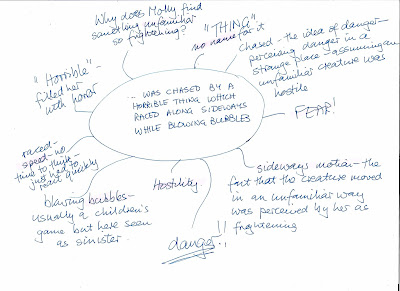 Why does Molly find
something unfamiliar
so frightening?
"THING"
no name for it
chased - the idea of danger -
perceiving danger in a
strange place - assuming an
unfamiliar creature was
hostile
FEAR!
"Horrible" -
filled her
with horror
... WAS CHASED BY A
HORRIBLE THING WHICH
RACED ALONG SIDEWAYS
WHILE BLOWING BUBBLES
raced -
speed - no
time to think,
just has to
react quickly
blowing bubbles -
usually a children's
game but here seen
as sinister.
Hostility
danger!!
sideways motion - the
fact that the creature moved
in an unfamiliar way
was perceived by her as
frightening